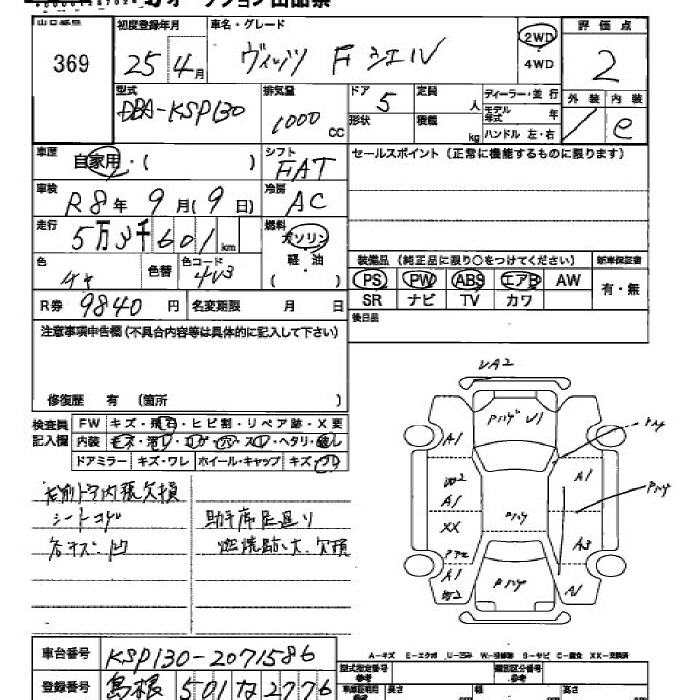 出品番号 初度登録年月 車名・グレード 評価点
369 25年4月 ヴィッツ F シエル 2WD 4WD 2
型式 排気量 ドア 定員 ディーラー・並行 外装 内装
DBA-KSP130 1000 cc 5 人 モデル年式 年 / e
形状 積載 kg ハンドル 左・右
車歴 自家用・( ) シフト FAT セールスポイント(正常に機能するものに限ります)
車検 R8年 9月(9日) 冷房 AC
走行 5万3千601km 燃料 ガソリン 軽・油
色 色替 色コード 4V3 装備品(純正品に限り○をつけてください) 新車保証書
PS PW ABS エアB AW 有・無
R券 9840円 名変期限 月 日 SR ナビ TV カワ
注意事項申告欄(不具合内容等は具体的に記入して下さい) 後日品
修復歴 有 (箇所 )
検査員記入欄 FW キズ・飛石・ヒビ割・リペア跡・X要
内装 ヘタリ
ドアミラー キズ・ワレ ホイール・キャップ キズ
内張欠損
シートコゲ 助手席足廻り
各キズ凹 燃焼跡 大 欠損
UA2
Pハゲ U1
A1 A1
W2
A1 Pハゲ
XX A3
A1 Pハゲ A1
W2
A-キズ E-エクボ U-凹み W-補修跡 S-サビ C-腐食 XX-交換済
車台番号 KSP130-2071586
型式指定番号 類別区分番号
登録番号 島根 501 な 2776
長さ 幅 高さ